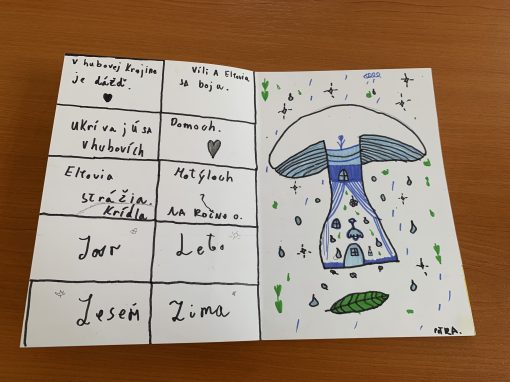 V hubovej Krajine
je dážď.
Víli A Eltovia
sa boja.
Ukrívajú sa
v hubovích
Domoch.
Eltovia
strážia.
Krídla
Motýloch
NA ROČNO O.
Jar
Leto
Jeseň
Zima